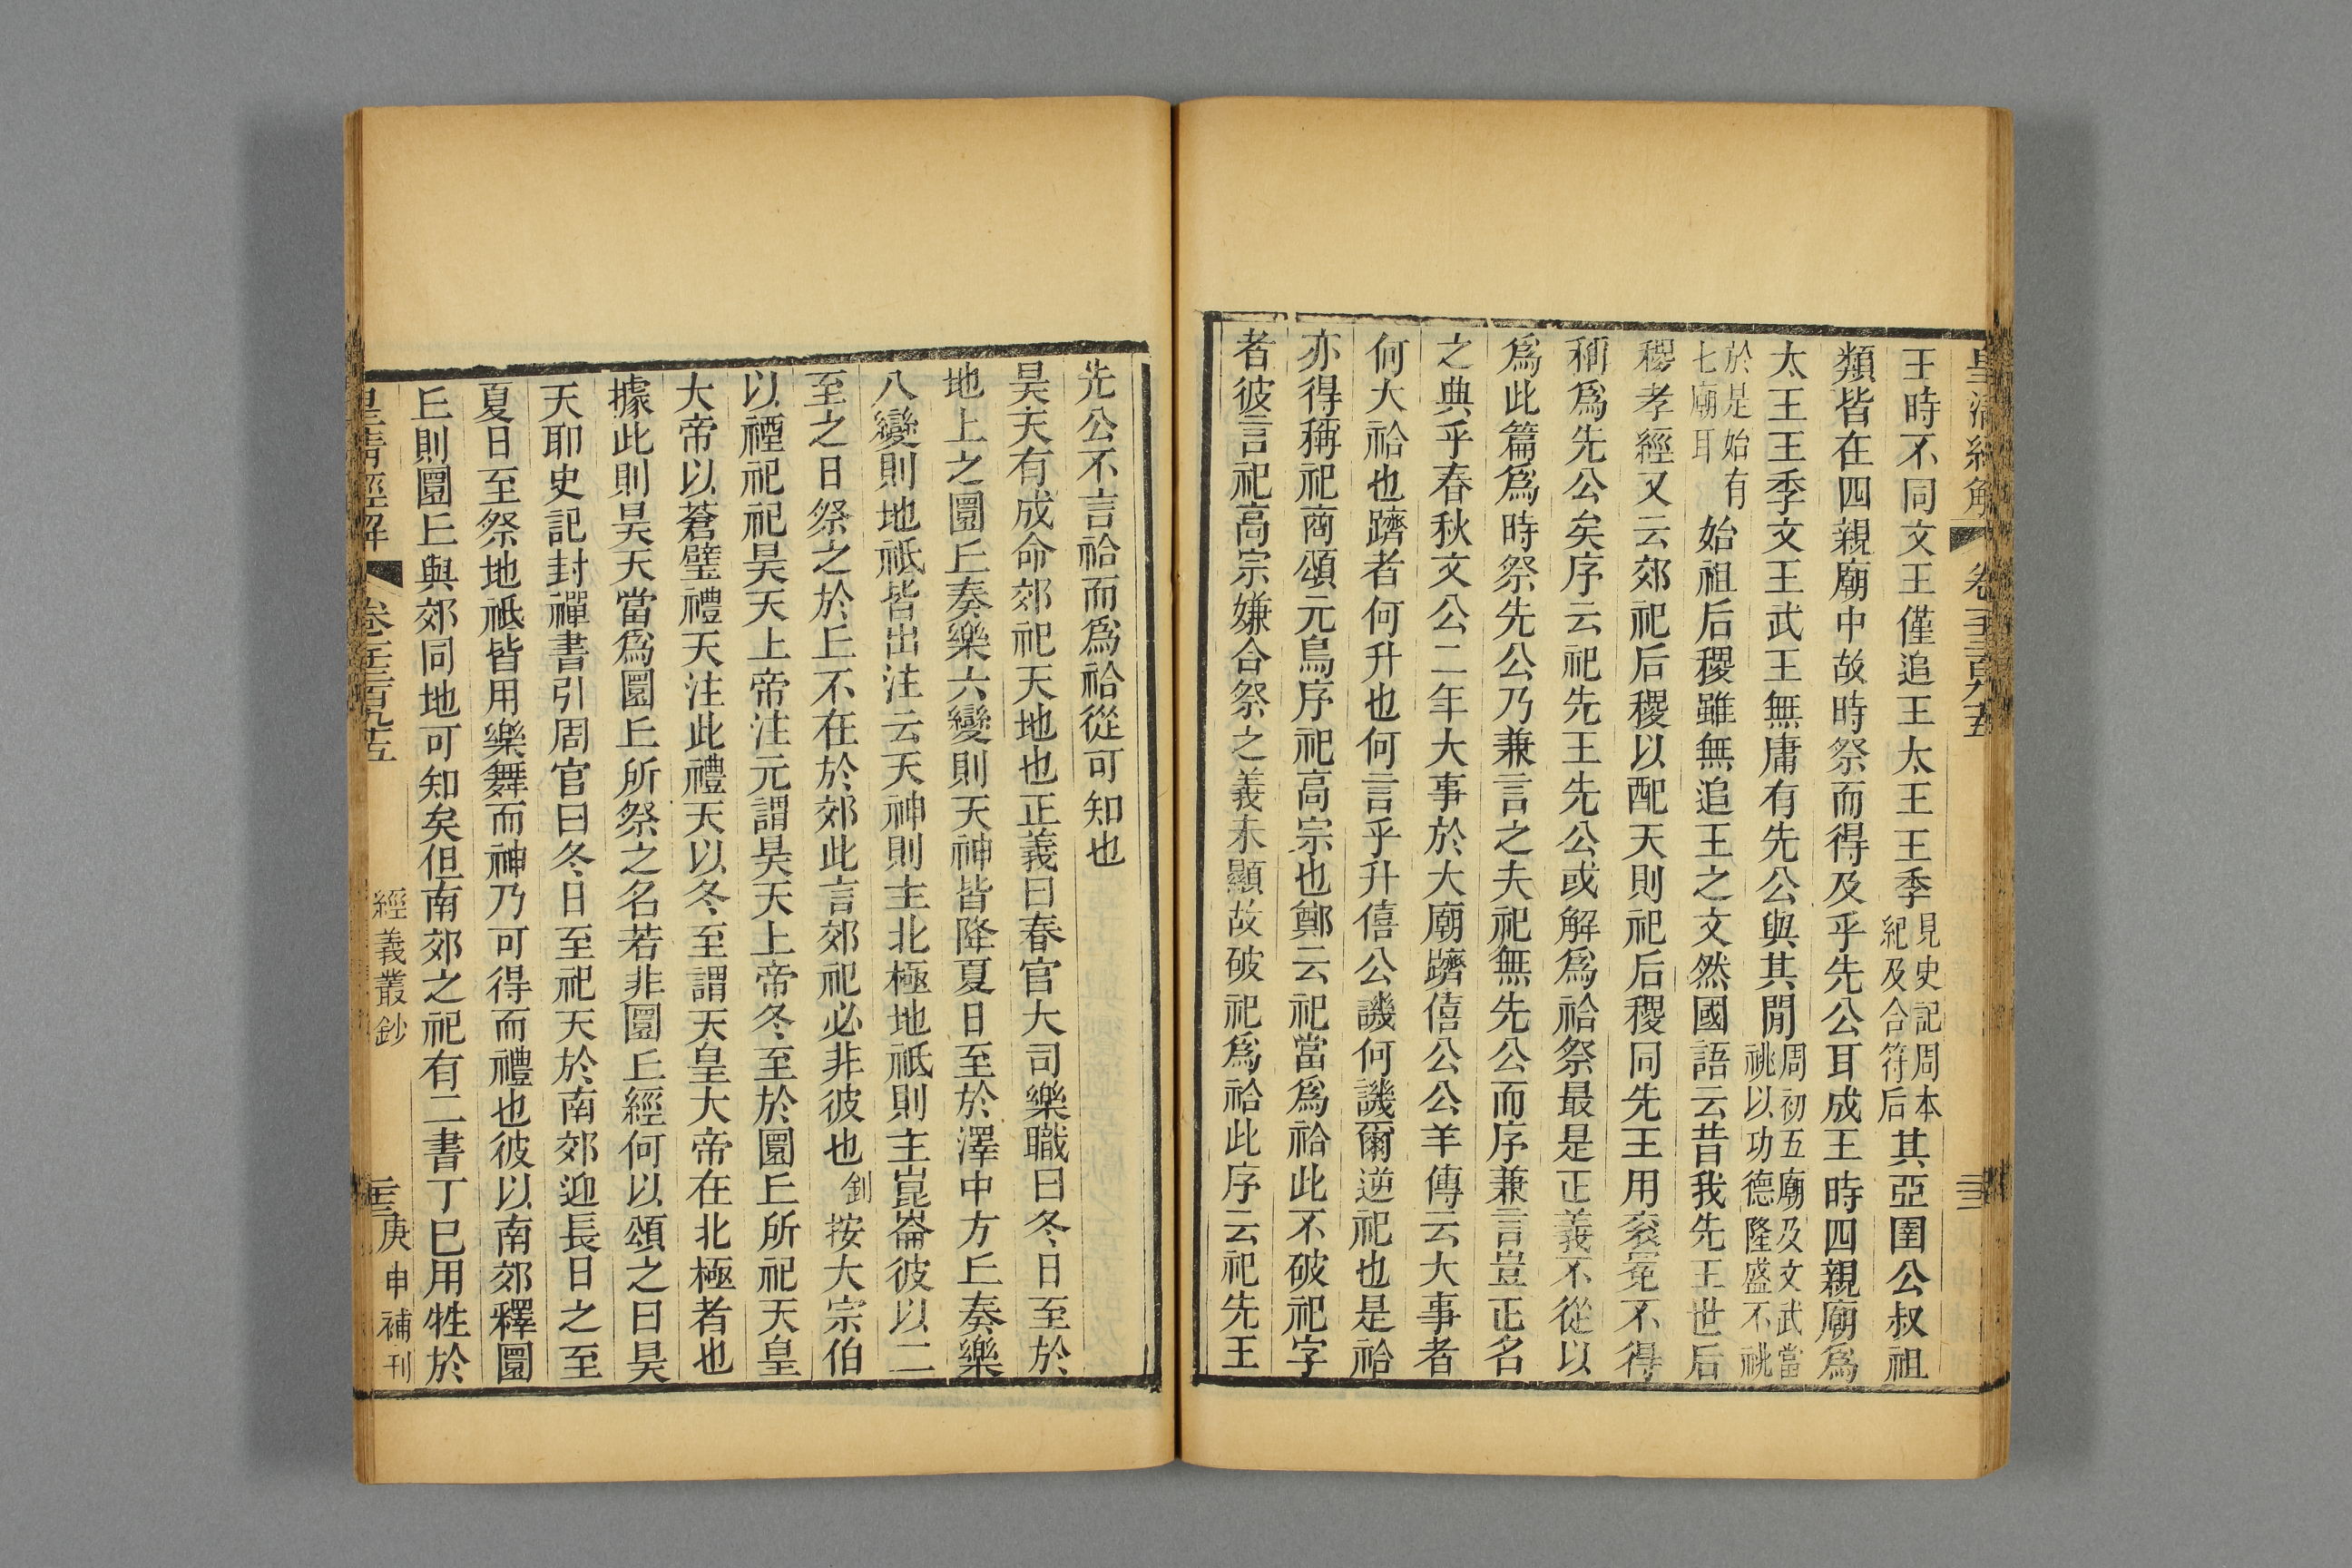 皇清經解 卷千三百九十五 三
王時不同文王僅追王太王王季見史記周本紀及合符后其亞圉公叔祖
類皆在四親廟中故時祭而得及乎先公耳成王時四親廟爲
太王王季文王武王無庸有先公與其閒周初五廟及文武當祧以功德隆盛不祧
於是始有七廟耳始祖后稷雖無追王之文然國語云昔我先王世后
稷孝經又云郊祀后稷以配天則祀后稷同先王用袞冕不得
稱爲先公矣序云祀先王先公或解爲祫祭最是正義不從以
爲此篇爲時祭先公乃兼言之夫祀無先公而序兼言豈正名
之典乎春秋文公二年大事於大廟躋僖公公羊傳云大事者
何大祫也躋者何升也何言乎升僖公譏何譏爾逆祀也是祫
亦得稱祀商頌元鳥序祀高宗也鄭云祀當爲祫此不破祀字
者彼言祀高宗嫌合祭之義未顯故破祀爲祫此序云祀先王
先公不言祫而爲祫從可知也
昊天有成命郊祀天地也正義曰春官大司樂職曰冬日至於
地上之圜丘奏樂六變則天神皆降夏日至於澤中方丘奏樂
八變則地祇皆出注云天神則主北極地祇則主崑崙彼以二
至之日祭之於丘不在於郊此言郊祀必非彼也釗按大宗伯
以禋祀祀昊天上帝注元謂昊天上帝冬至於圜丘所祀天皇
大帝以蒼璧禮天注此禮天以冬至謂天皇大帝在北極者也
據此則昊天當爲圜丘所祭之名若非圜丘經何以頌之曰昊
天耶史記封禪書引周官曰冬日至祀天於南郊迎長日之至
夏日至祭地祇皆用樂舞而神乃可得而禮也彼以南郊釋圜
丘則圜丘與郊同地可知矣但南郊之祀有二書丁巳用牲於
皇清經解 卷千三百九十五 經義叢鈔 庚申補刊